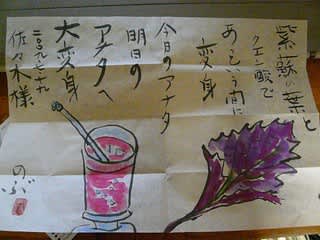 紫蘇の葉と
クエン酸で
あっという間に
変身
今日のアナタ
明日の
アナタへ
大変身
二〇〇九・六・十九
佐々木様
のぶ